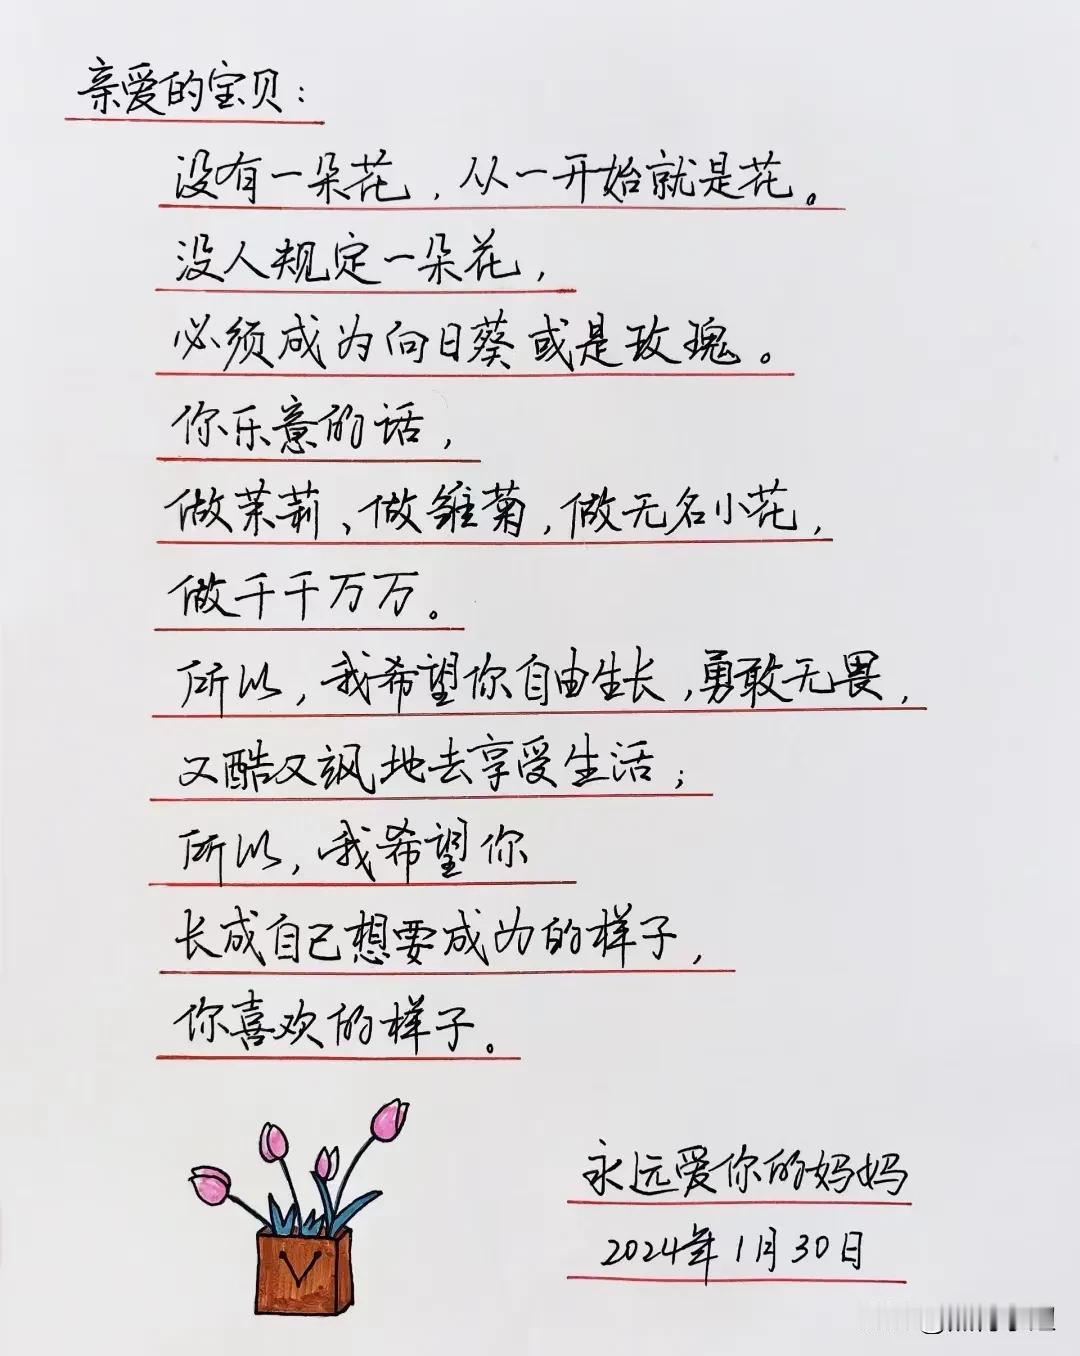 亲爱的宝贝：
没有一朵花，从一开始就是花。
没人规定一朵花，
必须成为向日葵或是玫瑰。
你乐意的话，
做茉莉、做雏菊，做无名小花，
做千千万万。
所以，我希望你自由生长，勇敢无畏，
又酷又飒地去享受生活；
所以，我希望你
长成自己想要成为的样子，
你喜欢的样子。
永远爱你的妈妈
2024年1月30日